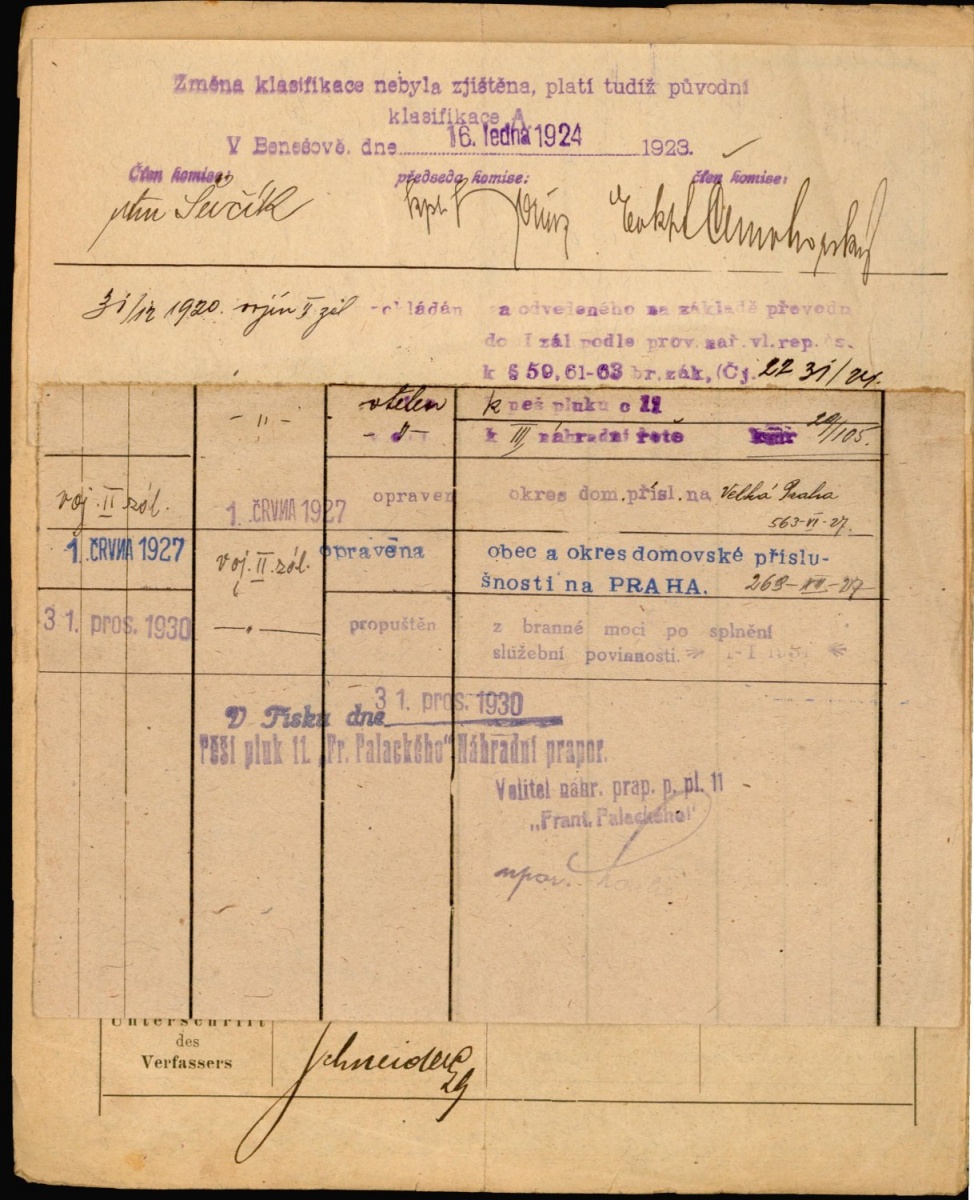 Změna klasifikace nebyla zjištěna, platí tudíž původní
klasifikace A.
V Benešově. dne 16. ledna 1924 1923.
Člen komise: předseda komise: člen komise:
Ševčík kpt.
31/12 1920. vojín II zál. a odvedeného na základě převodu
do I zál podle prov. nař. vl. rep. čs.
k § 59, 61-63 br. zák, (Čj. 22 31/21.
— " — vtělen k peš pluku č 11
— " — k III náhradní rotě 29/105.
voj. II. zál. 1. ČRVNA 1927 opraven okres dom. přísl. na Velká Praha
563-VI-27.
1. ČRVNA 1927 voj. II. zál. opravěna obec a okres domovské příslu-
šnosti na PRAHA. 263-VII-27
31. pros. 1930 — " — propuštěn z branné moci po splnění
služební povinnosti. 1-I-1931
V Písku dne 31. pros. 1930
Pěší pluk 11. „Fr. Palackého" Náhradní prapor.
Velitel náhr. prap. p. pl. 11
„Frant. Palackého"
Unterschrift
des
Verfassers
Schneider